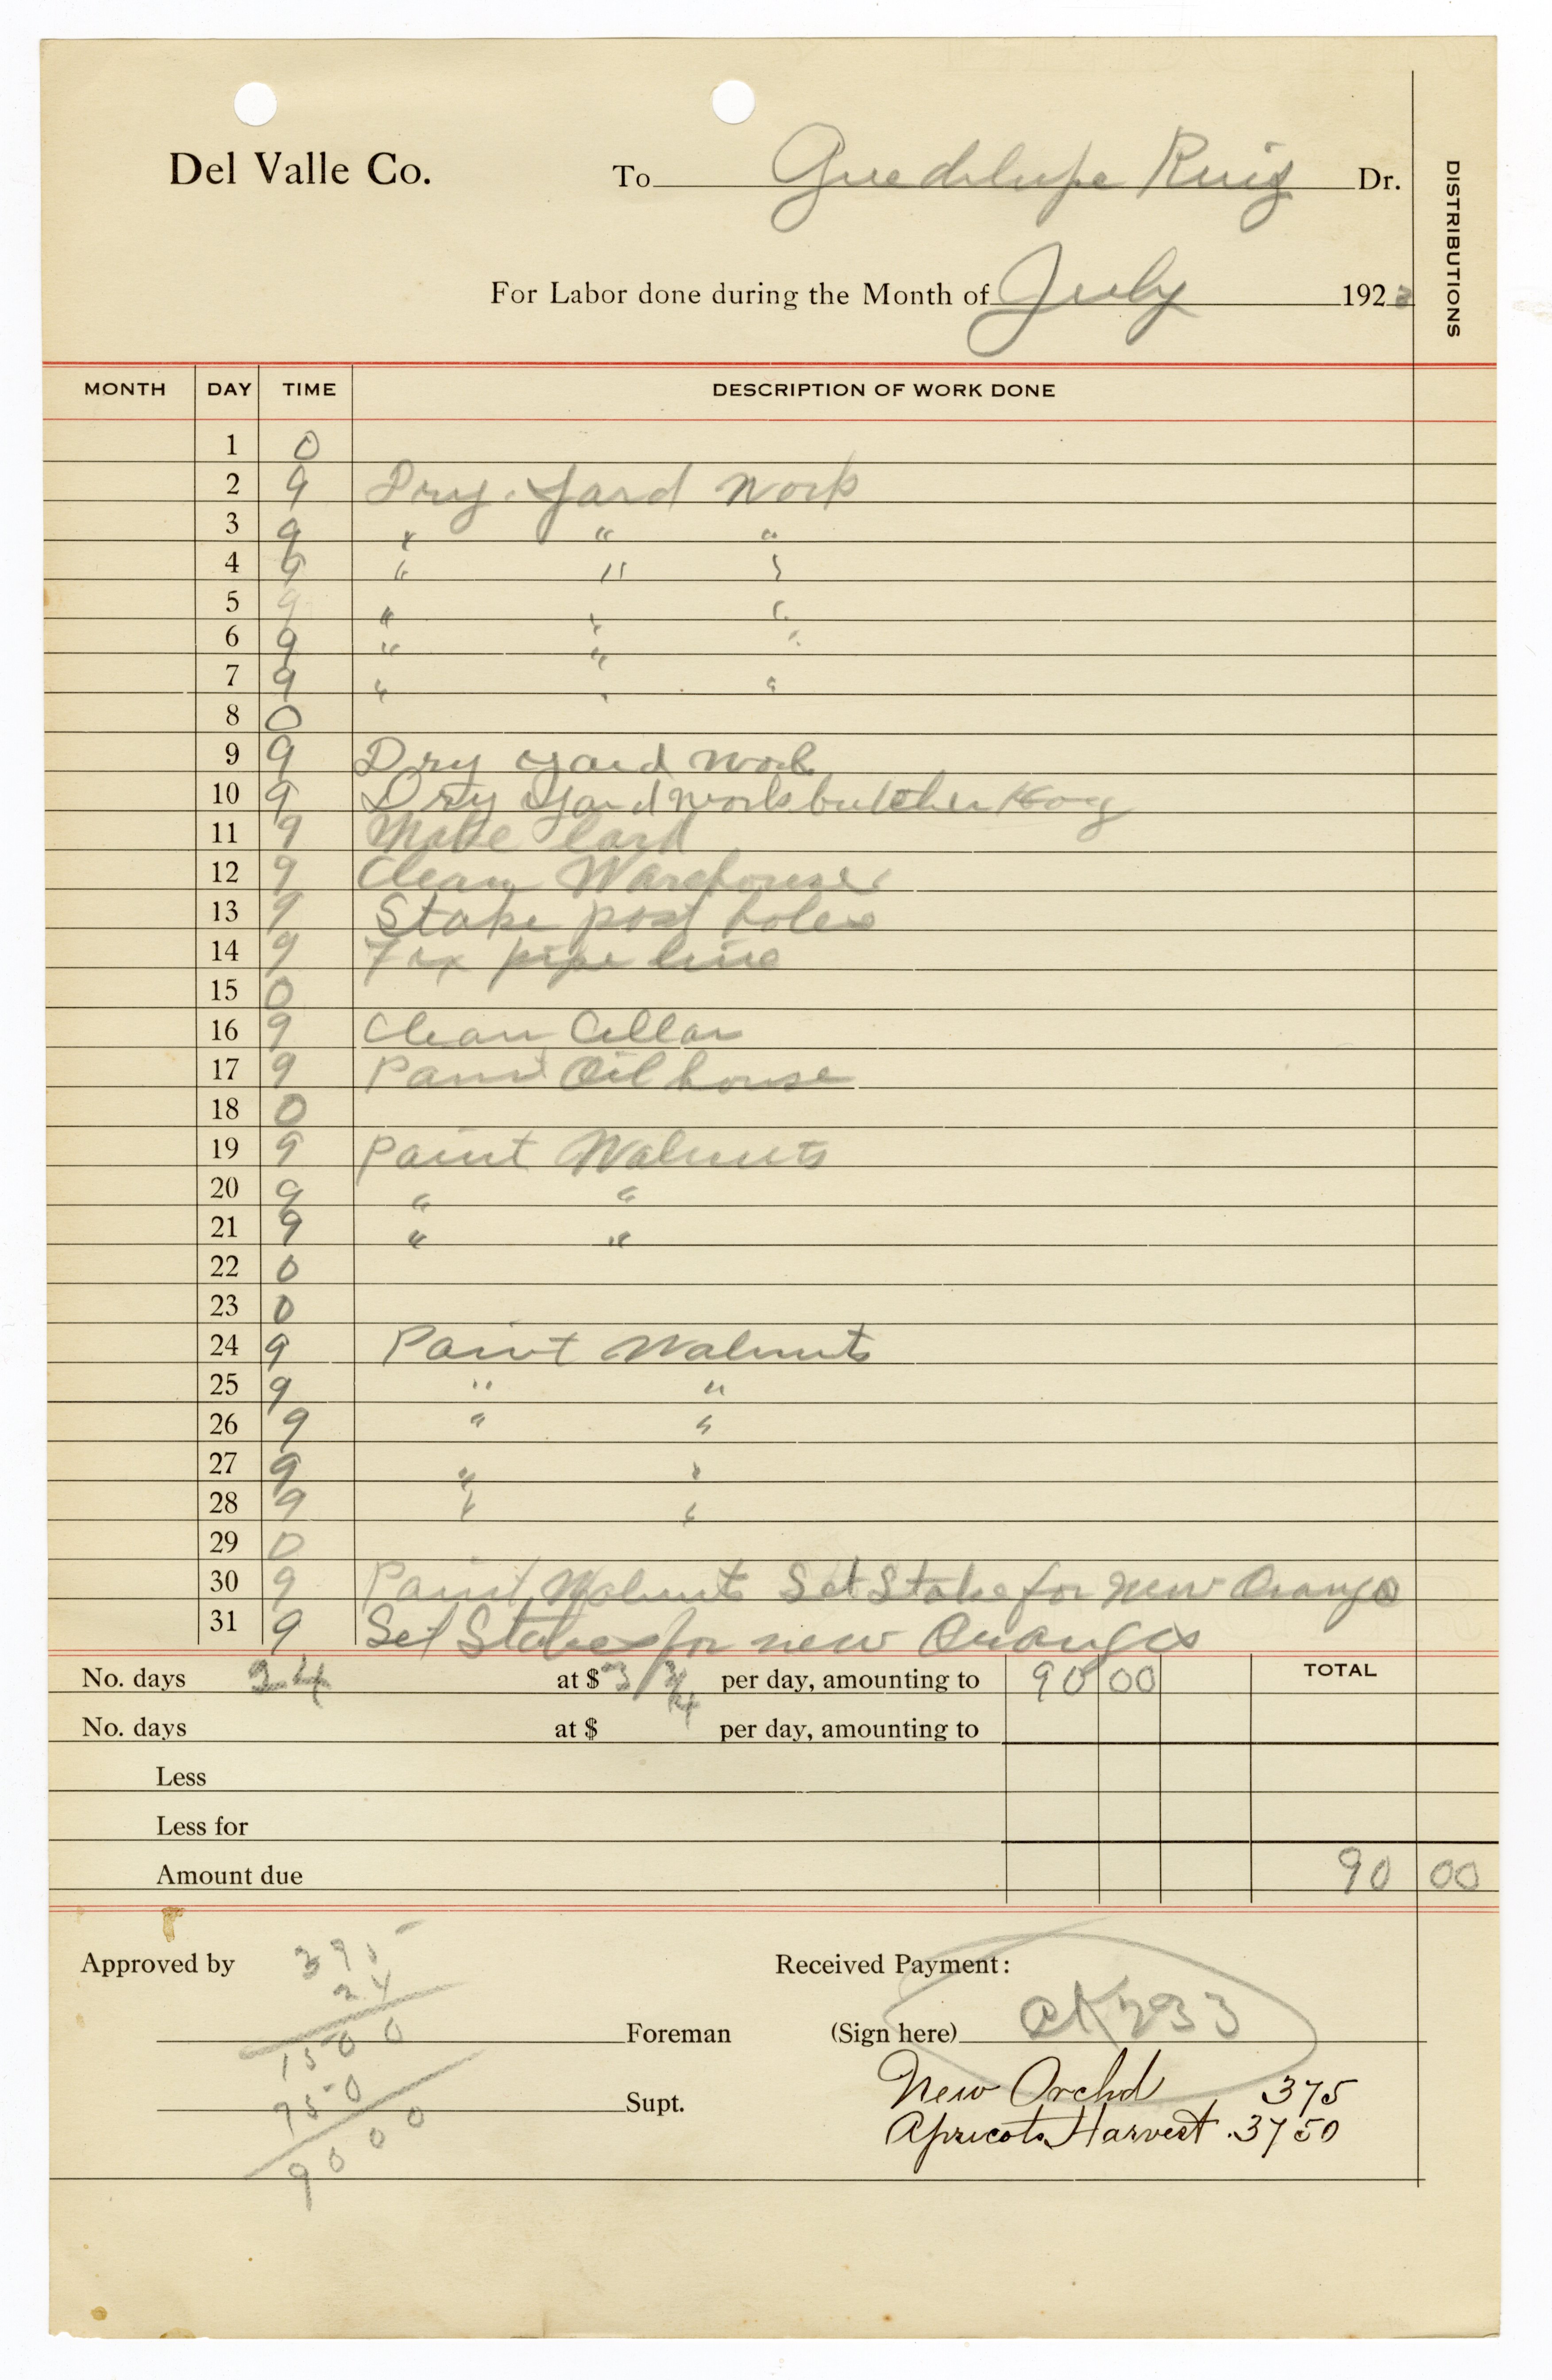 Del Valle Co. To Guedelupe Ruiz Dr.
DISTRIBUTIONS
For Labor done during the Month of July 1923
MONTH DAY TIME DESCRIPTION OF WORK DONE
1 0
2 9 Dry Yard Work
3 9 " " "
4 9 " " "
5 9 " " "
6 9 " " "
7 9 " " "
8 0
9 9 Dry yard work
10 9 Dry Yard work butcher Hog
11 9 Make lard
12 9 Clean Warehouse
13 9 Stake post holes
14 9 Fix pipe line
15 0
16 9 Clean Cellar
17 9 Paint Oil house
18 0
19 9 Paint Walnuts
20 9 " "
21 9 " "
22 0
23 0
24 9 Paint Walnuts
25 9 " "
26 9 " "
27 9 " "
28 9 " "
29 0
30 9 Paint Walnuts Set Stake for new Orange
31 9 Set Stakes for new Oranges
No. days 24 at $ 3 3/4 per day, amounting to 90 00 TOTAL
No. days at $ per day, amounting to
Less
Less for
Amount due 90 00
Approved by Received Payment:
375
24
1500
750
9000
Foreman (Sign here) CK 733
Supt. New Orchd 375
Apricots Harvest. 3750